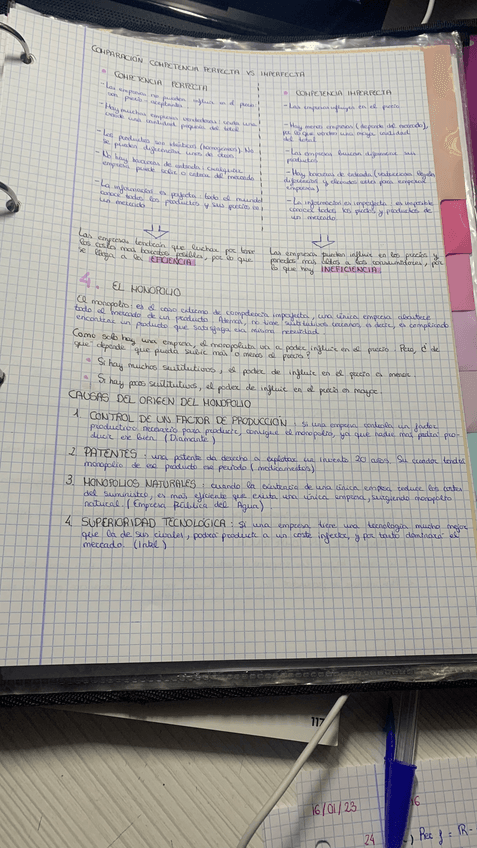 COMPARACIÓN COMPETENCIA PERFECTA VS IMPERFECTA
COMPETENCIA PERFECTA
- Las empresas no pueden influir en el precio
son precio-aceptantes
- Hay muchas empresas vendedoras cada una
vende una cantidad pequeña del total
- Los productos son idénticos (homogéneos). No
se pueden diferenciar unos de otros
- No hay barreras de entrada cualquier
empresa puede entrar o salir del mercado
- La información es perfecta: todo el mundo
conoce todos los productos y sus precios en
un mercado
Las empresas tendrán que luchar por tener
los costes más baratos posibles, por lo que
se llega a la EFICIENCIA
COMPETENCIA IMPERFECTA
- Las empresas influyen en el precio
- Hay menos empresas (depende del mercado),
por lo que venden una mayor cantidad
del total
- Las empresas buscan diferenciar sus
productos
- Hay barreras de entrada (restricciones legales
empresas)
- La información es imperfecta: es imposible
conocer todos los precios y productos de
un mercado
Las empresas pueden influir en los precios y
ponerlos más altos a los consumidores, por
lo que hay INEFICIENCIA
4. EL MONOPOLIO
El monopolio: es el caso extremo de competencia imperfecta, una única empresa abastece
todo el mercado de un producto. Además, no tiene sustitutivos cercanos, es decir, es complicado
encontrar un producto que satisfaga esa misma necesidad.
Como solo hay una empresa, el monopolista va a poder influir en el precio. Pero, ¿de
qué depende que pueda subir más o menos el precio?
Si hay muchos sustitutivos, el poder de influir en el precio es menor.
Si hay pocos sustitutivos, el poder de influir en el precio es mayor.
CAUSAS DEL ORIGEN DEL MONOPOLIO
1. CONTROL DE UN FACTOR DE PRODUCCIÓN: si una empresa controla un factor
productivo necesario para producir, consigue el monopolio, ya que nadie más podrá pro-
ducir ese bien. (Diamante)
2. PATENTES: una patente da derecho a explotar un invento 20 años. Su creador tendrá
monopolio de ese producto ese periodo (medicamentos)
3. MONOPOLIOS NATURALES: cuando la existencia de una única empresa reduce los costes
del suministro, es más eficiente que exista una única empresa, surgiendo monopolio
natural. (Empresa Pública del Agua)
4. SUPERIORIDAD TECNOLÓGICA: Si una empresa tiene una tecnología mucho mejor
que la de sus rivales, podrá producir a un coste inferior, y por tanto dominará el
mercado. (Intel)
117
16/01/23
16
24
Rec f = R -